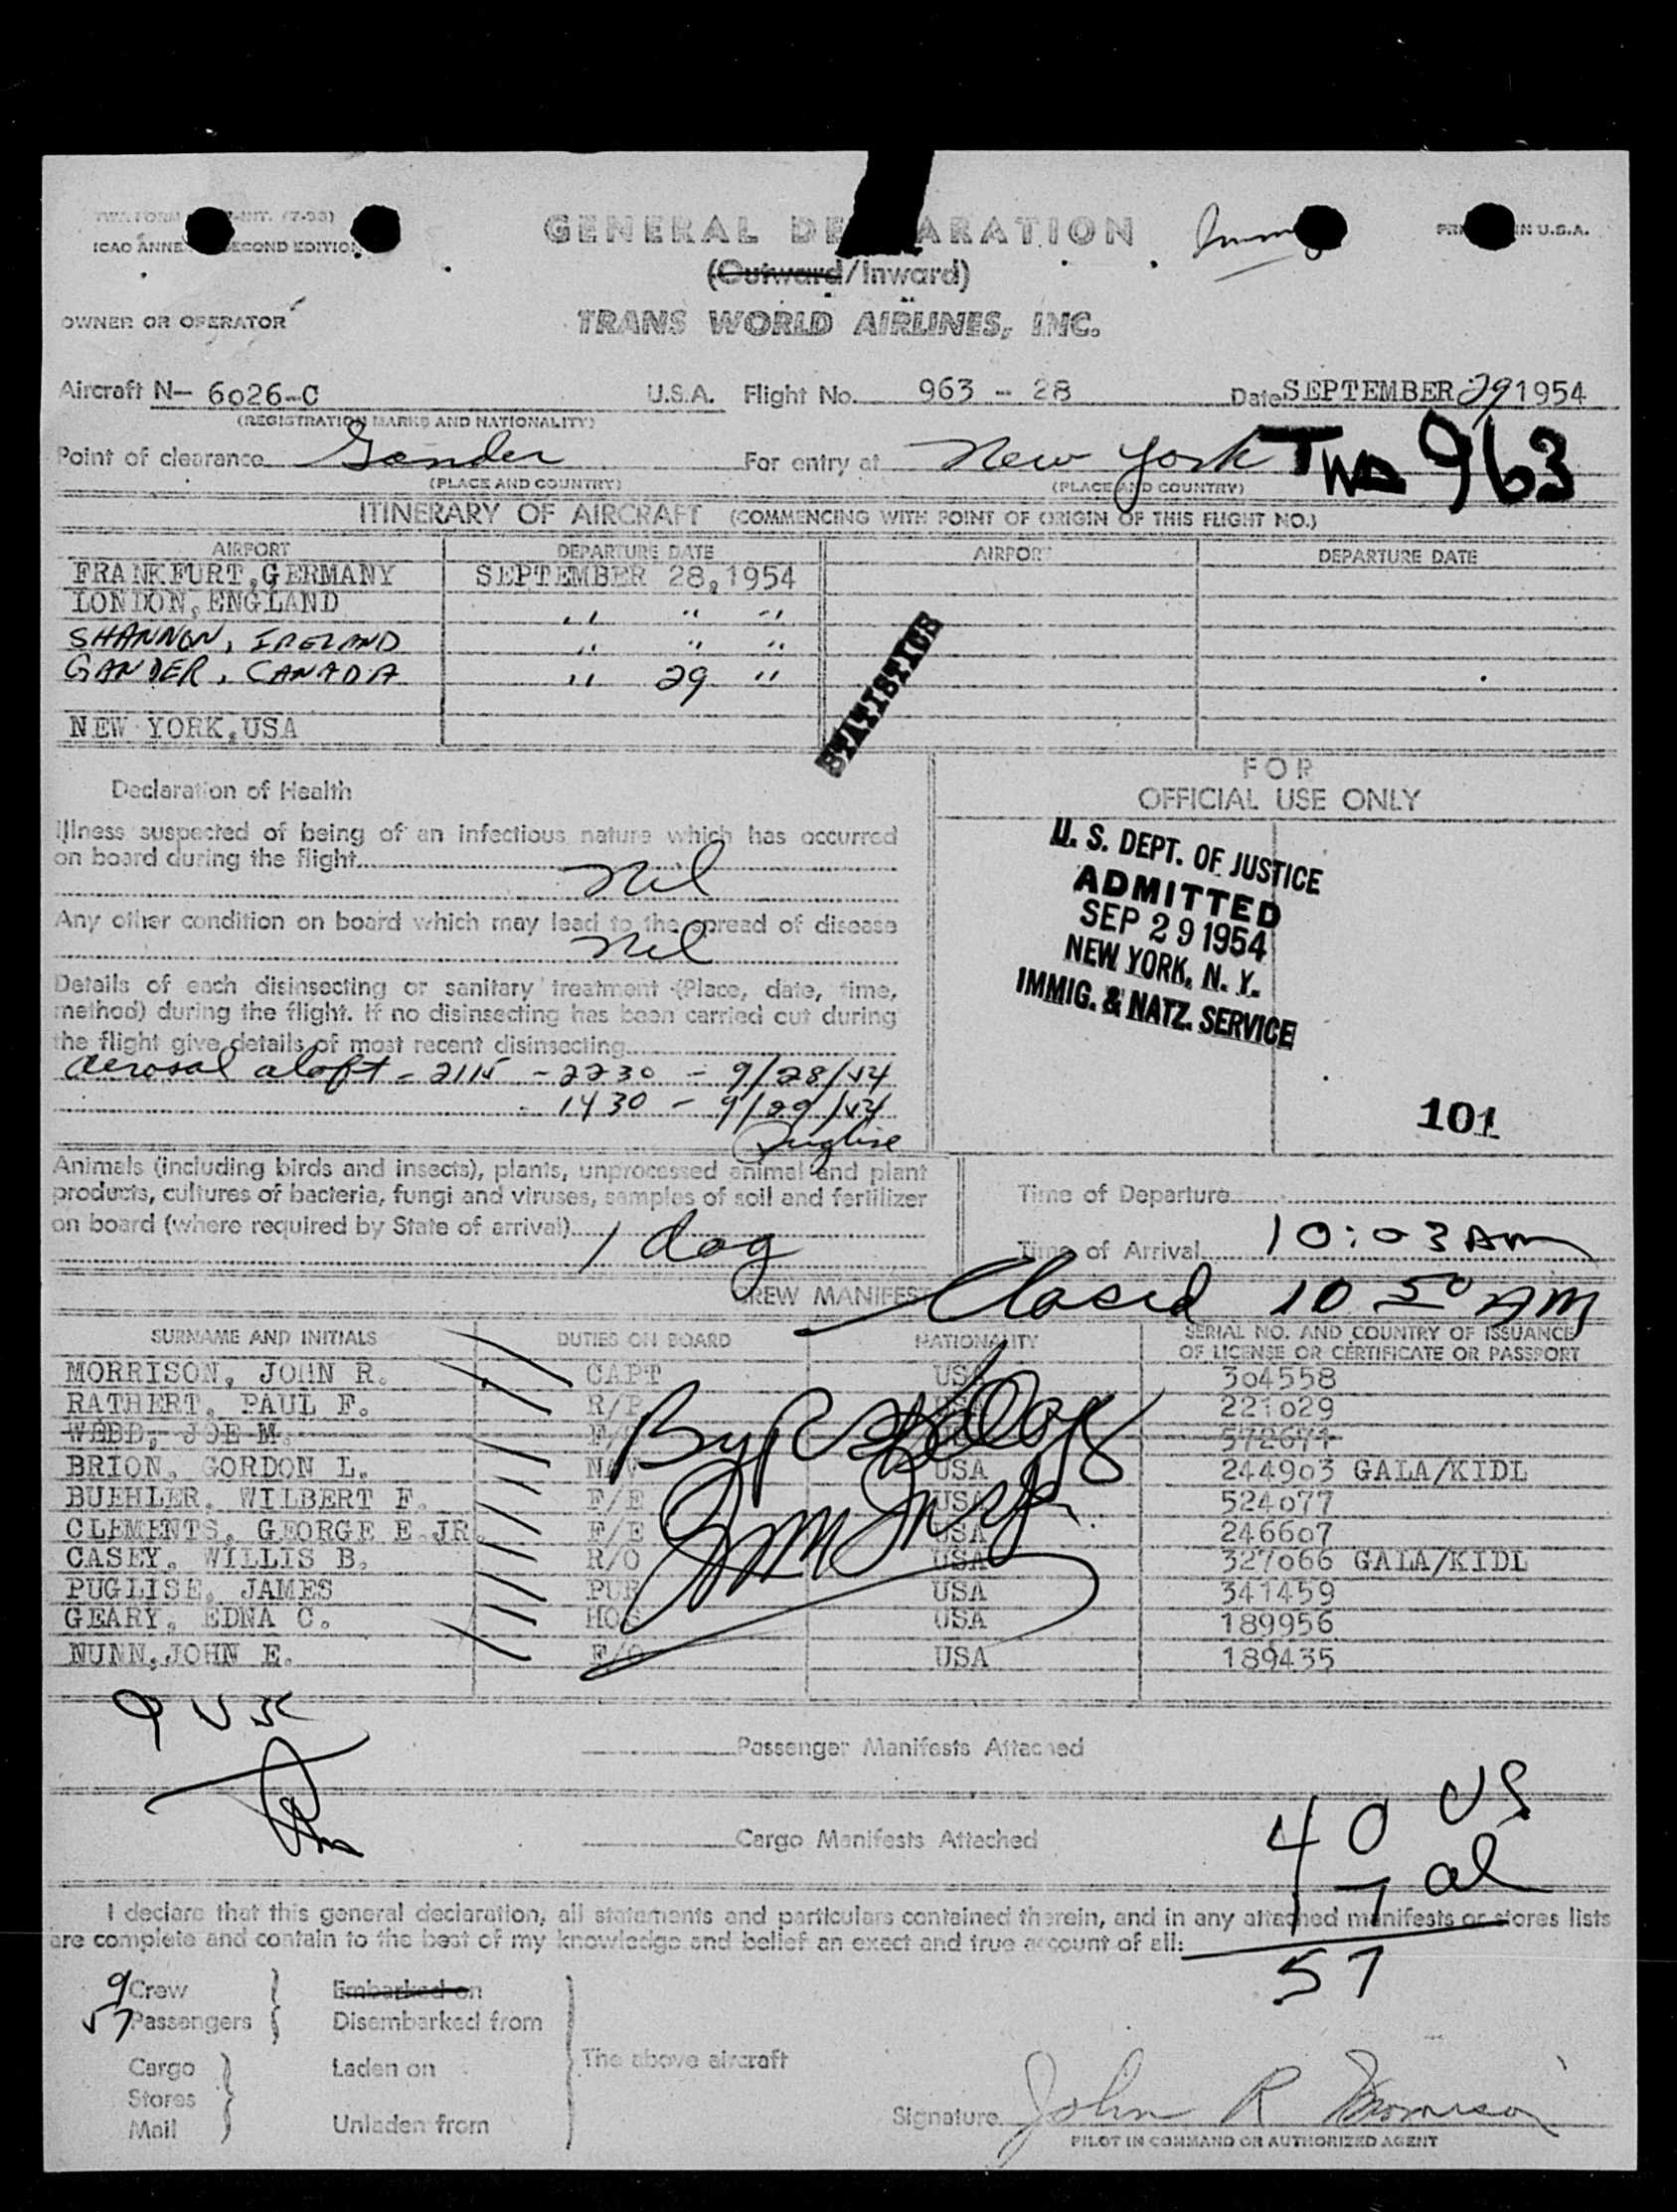 ICAO ANNE SECOND EDITION
GENERAL DE ARATION
(Outward/Inward)
OWNER OR OPERATOR
TRANS WORLD AIRLINES, INC.
Aircraft N- 6026-C U.S.A. Flight No. 963 - 28 Date SEPTEMBER 29 1954
(REGISTRATION MARKS AND NATIONALITY)
Point of clearance Gander For entry at New York TWA 963
(PLACE AND COUNTRY) (PLACE AND COUNTRY)
ITINERARY OF AIRCRAFT (COMMENCING WITH POINT OF ORIGIN OF THIS FLIGHT NO.)
AIRPORT DEPARTURE DATE AIRPORT DEPARTURE DATE
FRANKFURT, GERMANY SEPTEMBER 28, 1954
LONDON, ENGLAND " " "
SHANNON, IRELAND " " "
GANDER, CANADA " 29 "
NEW YORK, USA
STATISTICS
Declaration of Health
Illness suspected of being of an infectious nature which has occurred
on board during the flight
nil
Any other condition on board which may lead to the spread of disease
nil
Details of each disinsecting or sanitary treatment (Place, date, time,
method) during the flight. If no disinsecting has been carried out during
the flight give details of most recent disinsecting
aerosol aloft - 2115 - 2230 - 9/28/54
1430 - 9/29/54
Puglise
FOR
OFFICIAL USE ONLY
U. S. DEPT. OF JUSTICE
ADMITTED
SEP 29 1954
NEW YORK, N. Y.
IMMIG. & NATZ. SERVICE
101
Animals (including birds and insects), plants, unprocessed animal and plant
products, cultures of bacteria, fungi and viruses, samples of soil and fertilizer
on board (where required by State of arrival)
1 dog
Time of Departure
Time of Arrival 10:03 Am
CREW MANIFEST Closed 10 50 AM
SURNAME AND INITIALS DUTIES ON BOARD NATIONALITY SERIAL NO. AND COUNTRY OF ISSUANCE
OF LICENSE OR CERTIFICATE OR PASSPORT
MORRISON, JOHN R. CAPT USA 304558
RATHERT, PAUL F. R/P 221029
WEBB, JOE M. 572671
BRION, GORDON L. NAV USA 244903 GALA/KIDL
BUEHLER, WILBERT F. F/E USA 524077
CLEMENTS, GEORGE E.JR. F/E USA 246607
CASEY, WILLIS B. R/O USA 327066 GALA/KIDL
PUGLISE, JAMES PUR USA 341459
GEARY, EDNA C. HOS USA 189956
NUNN, JOHN E. F/O USA 189435
Passenger Manifests Attached
Cargo Manifests Attached
40 US
17 al
57
I declare that this general declaration, all statements and particulars contained therein, and in any attached manifests or stores lists
are complete and contain to the best of my knowledge and belief an exact and true account of all:
9 Crew Embarked on
57 Passengers Disembarked from
Cargo Laden on The above aircraft
Stores
Mail Unladen from
Signature John R Morrison
PILOT IN COMMAND OR AUTHORIZED AGENT